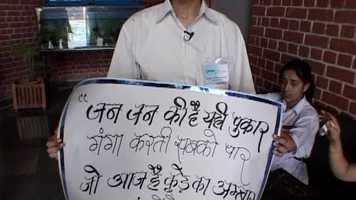 "जन जन की है यही पुकार
गंगा करती सबको पार
जो आज है कूड़े का अम्बार